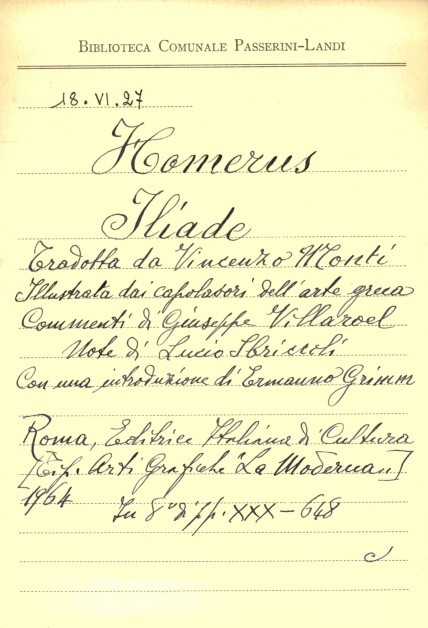 BIBLIOTECA COMUNALE PASSERINI-LANDI
18.VI.27
Homerus
Iliade
Tradotta da Vincenzo Monti
Illustrata dai capolavori dell'arte greca
Commenti di Giuseppe Villaroel
Note di Lucio Sbriccoli
Con una introduzione di Ermanno Grimm
Roma, Editrice Italiana di Cultura
[Tip. Arti Grafiche "La Moderna"]
1964
In 8° di pp. XXX-648
c